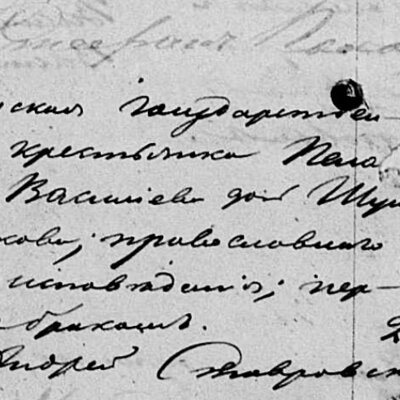 ская государствен-
крестьянка Пела
Василиева дой Шу
кова; православнаго
исповѣданія; пер-
бракомъ.
Андрей Ставровск